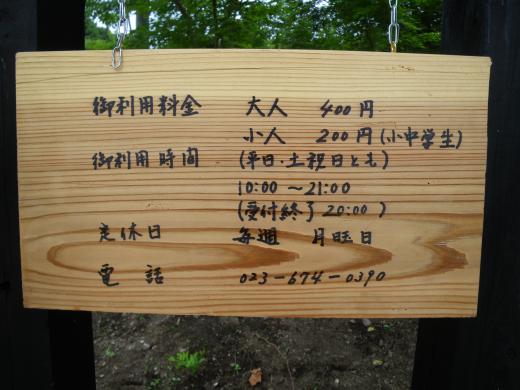 御利用料金 大人 400円
小人 200円(小中学生)
御利用時間 (平日・土祝日とも)
10:00 〜21:00
(受付終了 20:00 )
定休日 毎週 月曜日
電話 023-674-0390